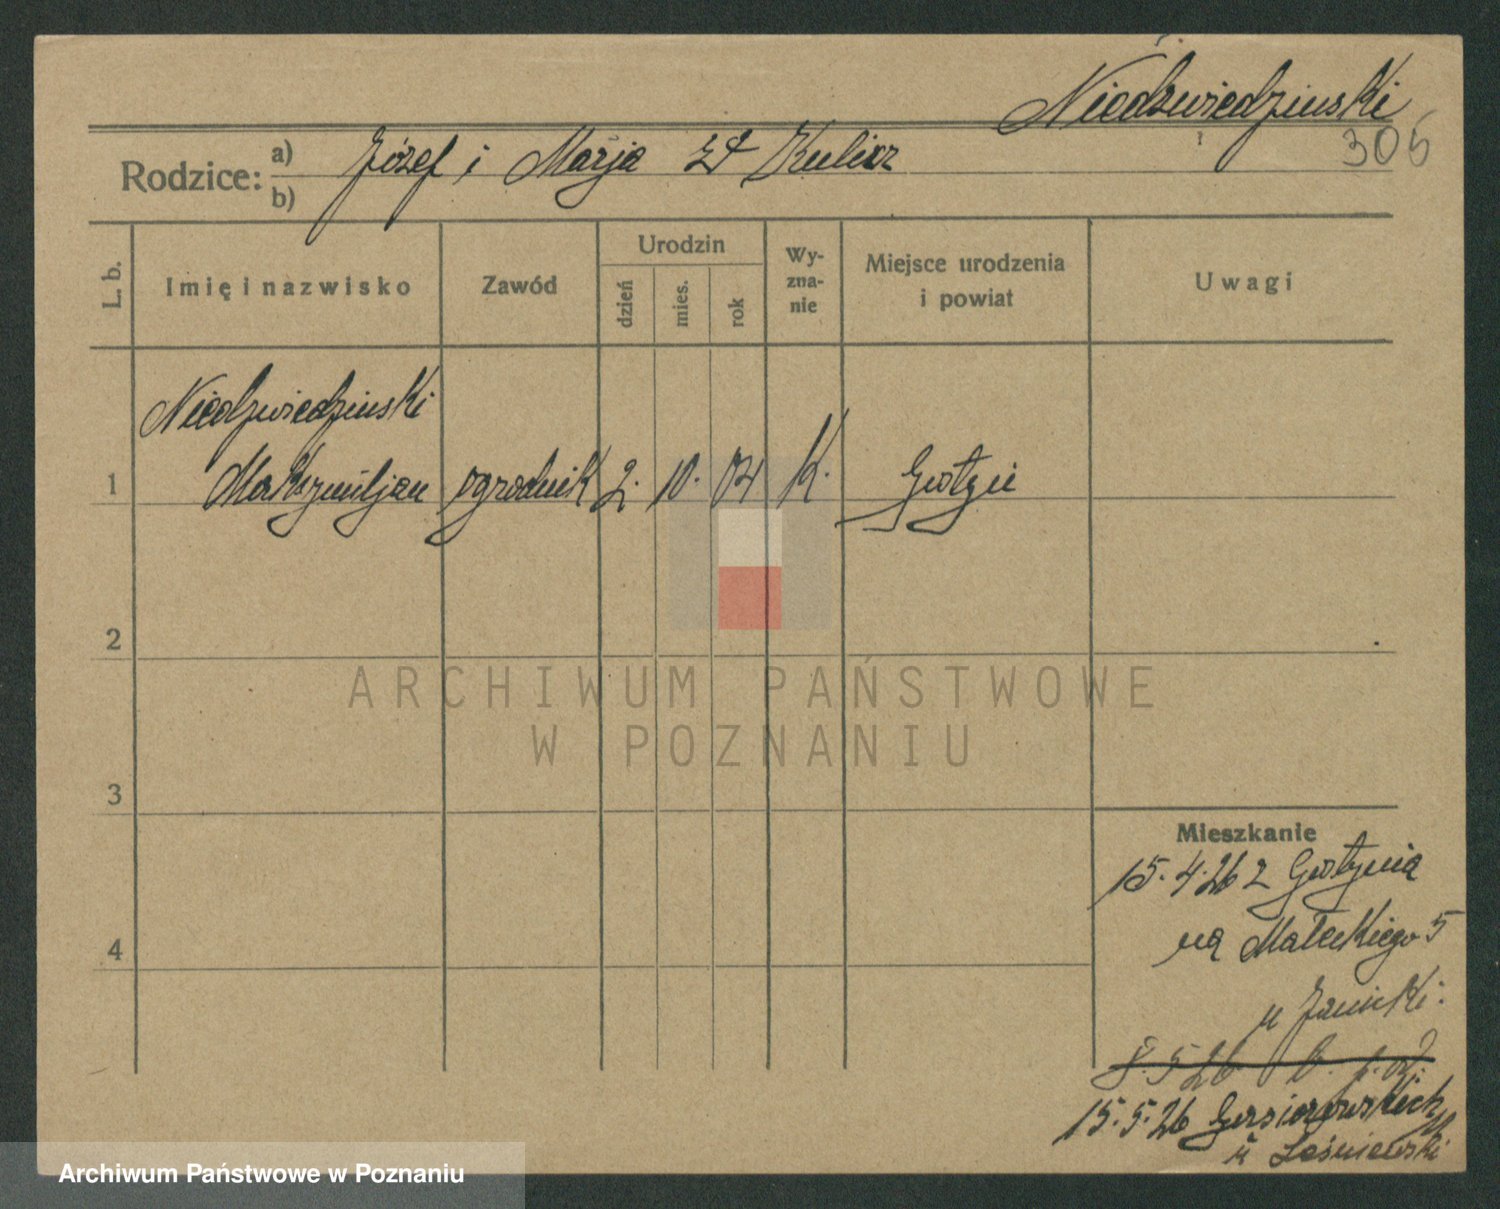 Niedzwiedzinski
305
Rodzice: a) b) Józef i Marja zd Kulisz
L. b. Imię i nazwisko Zawód Urodzin dzień mies. rok Wy-zna-nie Miejsce urodzenia i powiat Uwagi
Niedzwiedzinski
1 Maksymiljan ogrodnik 2. 10. 04 K. Gostyń
2
ARCHIWUM PAŃSTWOWE
W POZNANIU
3
Mieszkanie
15.4.26 z Gostynia
na Małeckiego 5
4
u Janicki.
8.5.26
15.5.26 Gąsiorowskich
u Leśniewski
Archiwum Państwowe w Poznaniu